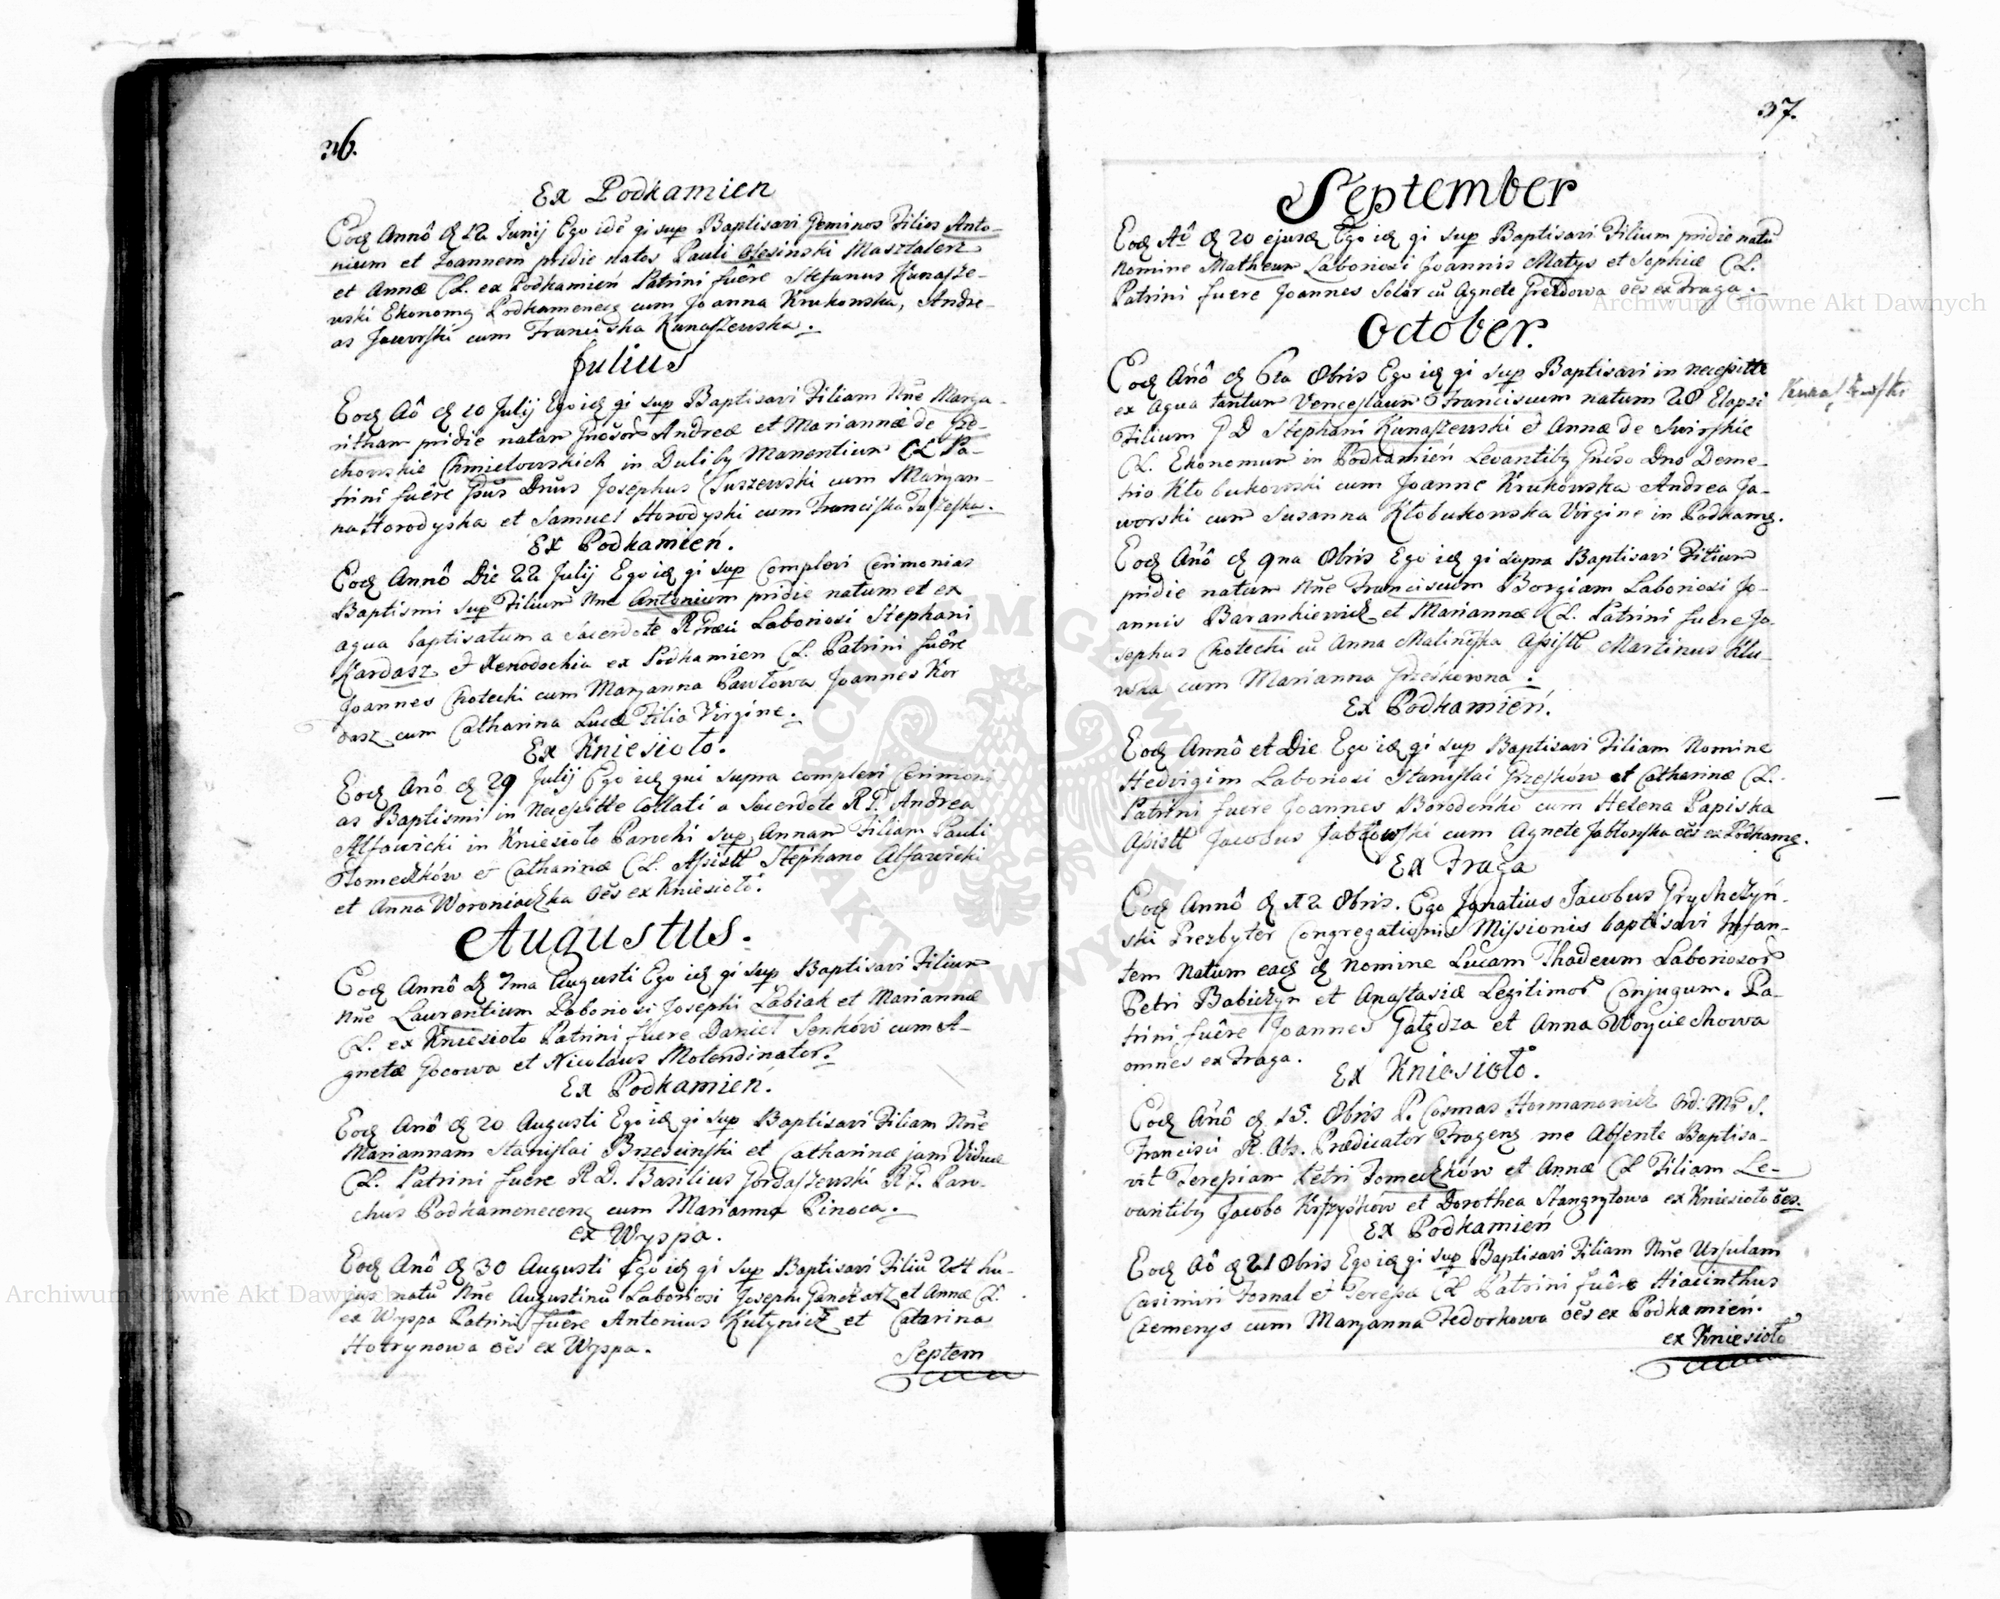 36.
Ex Podkamien
Eodq Annô dq 12 Junij Ego idē qi sup Baptisavi Geminos Filios Anto-
nium et Joannem pridie natos Pauli Olesinski Masztalerz
et Annæ CL. ex Podkamień Patrini fuêre Stefanus Kunasze-
wski Ekonomq Podkamenecq cum Joanna Krukowska, Andre-
as Jaworski cum Franciska Kunaszewska.
Julius
Eodq Aô dq 10 Julij Ego idq qi sup Baptisavi Filiam Nñe Marga-
ritham pridie natam Gñosor Andreæ et Mariannæ de
chowskie Chmielowskich in Duliby Manentium CL Pa-
trini fuêre Gsus Dnus Josephus Suszewski cum Maryan-
na Horodyska et Samuel Horodyski cum Franciska
Ex Podkamień.
Eodq Annô Die 22 Julij Ego idq qi sup Complevi Cerimonias
Baptismi sup Filium Nñe Antonium pridie natum et ex
aqua baptisatum a Sacerdote R Laboriosi Stephani
Kardasz et Xenodochia ex Podkamien CL. Patrini fuêre
Joannes Chotecki cum Maryanna Pawłowa Joannes Kor
dasz cum Catharina Lucæ Filia Virgine.
Ex Kniesioło.
Eodq Anô dq 29 Julij Ego idq qui supra complevi Cerimoni
as Baptismi in Necessitte Collati a Sacerdote R P. Andrea
Alfawicki in Kniesioło Parochi sup Annam Filiam Pauli
Tomeczków et Catharinæ CL. Assistt Stephano Alfawicki
et Anna Woroniaczka oēs ex Kniesioło.
Augustus.
Eodq Annô dq 7ma Augusti Ego idq qi sup Baptisavi Filium
Nñe Laurentium Laboriosi Josephi Łabiak et Mariannæ
CL. ex Kniesioło Patrini fuere Daniel Senków cum A-
gnetæ Gocowa et Nicolaus Molendinator.
Ex Podkamień.
Eodq Anô dq 20 Augusti Ego idq qi sup Baptisavi Filiam Nñe
Mariannam Stanislai Brzezinski et Catharinæ jam Viduæ
CL. Patrini fuere R D. Basilius Gordaszewski R P. Paro-
chus Podkamenecenq cum Marianna Pinoca.
ex Wyspa.
Eodq Anô dq 30 Augusti Ego idq qi sup Baptisavi Filiū 24 hu-
jus natū Nñe Augustinū Laboriosi Josephi Ganczarz et Annæ CL.
ex Wyspa Patrini fuêre Antonius Kutynicz et Catarina
Hotrynowa oēs ex Wyspa.
Septem
37.
September
Eodq Aô dq 20 ejusdq Ego idq qi sup Baptisavi Filium pridie natū
Nomine Matheum Laboriosi Joannis Matys et Sophiæ CL.
Patrini fuere Joannes Solar cū Agnete Grezdowa oēs ex Fraga.
October.
Eodq Anô dq 6ta 8bris Ego idq qi sup Baptisavi in necessitte
ex Aqua tantum Venceslaum Franciscum natum 28 Elapsi
Filium G D Stephani Kunaszewski et Annæ de Swirskie
CL. Ekonomum in Podkamień Levantiby Gñso Dno Deme-
trio Kłobukowski cum Joanne Krukowska Andrea Ja-
worski cum Susanna Kłobukowska Virgine in Podkamq.
Kunaszewski
Eodq Anô dq 9na 8bris Ego idq qi supra Baptisavi Filium
pridie natum Nñe Franciscum Borgiam Laboriosi Jo-
annis Barankiewicz et Mariannæ CL. Patrini fuere Jo-
sephus Chotecki cū Anna Malinska Assistt Martinus Klu-
wka cum Marianna Grześkowna.
Ex Podkamień.
Eodq Annô et Die Ego idq qi sup Baptisavi Filiam Nomine
Hedvigim Laboriosi Stanislai Grzesków et Catharinæ CL.
Patrini fuere Joannes Borodeńko cum Helena Papiska
Assistt Jacobus Jabłowski cum Agnete Jabłonska oēs ex Podkamq.
Ex Fraga
Eodq Annô dq 12 8bris. Ego Ignatius Jacobus Grychczyń-
ski Prezbyter Congregationis Missionis baptisavi Infan-
tem Natum eadq dq Nomine Lucam Thadeum Laboriosor
Petri Babiczyn et Anastasiæ Legitimor Conjugum. Pa-
trini fuêre Joannes Gałędza et Anna Woyciechowa
omnes ex Fraga.
Ex Kniesioło.
Eodq Anô dq 15. 8bris P. Cosmas Hormanowicz Ord: Mr S.
Francisci R. Obs. Prædicator Fragenq me Absente Baptisa-
vit Teresiam Petri Tomeczków et Annæ CL Filiam Le-
vantiby Jacobo Krzyśków et Dorothea Stangrytowa ex Kniesioło oēs.
Ex Podkamień
Eodq Aô dq 21 8bris Ego idq qi sup Baptisavi Filiam Nñe Ursulam
Casimiri Fornal et Teressa CL Patrini fuêre Hiacinthus
Czemerys cum Maryanna Fedorkowa oēs ex Podkamień.
ex Kniesioło
Archiwum Główne Akt Dawnych
Archiwum Główne Akt Dawnych
ARCHIWUM GŁÓWNE AKT DAWNYCH